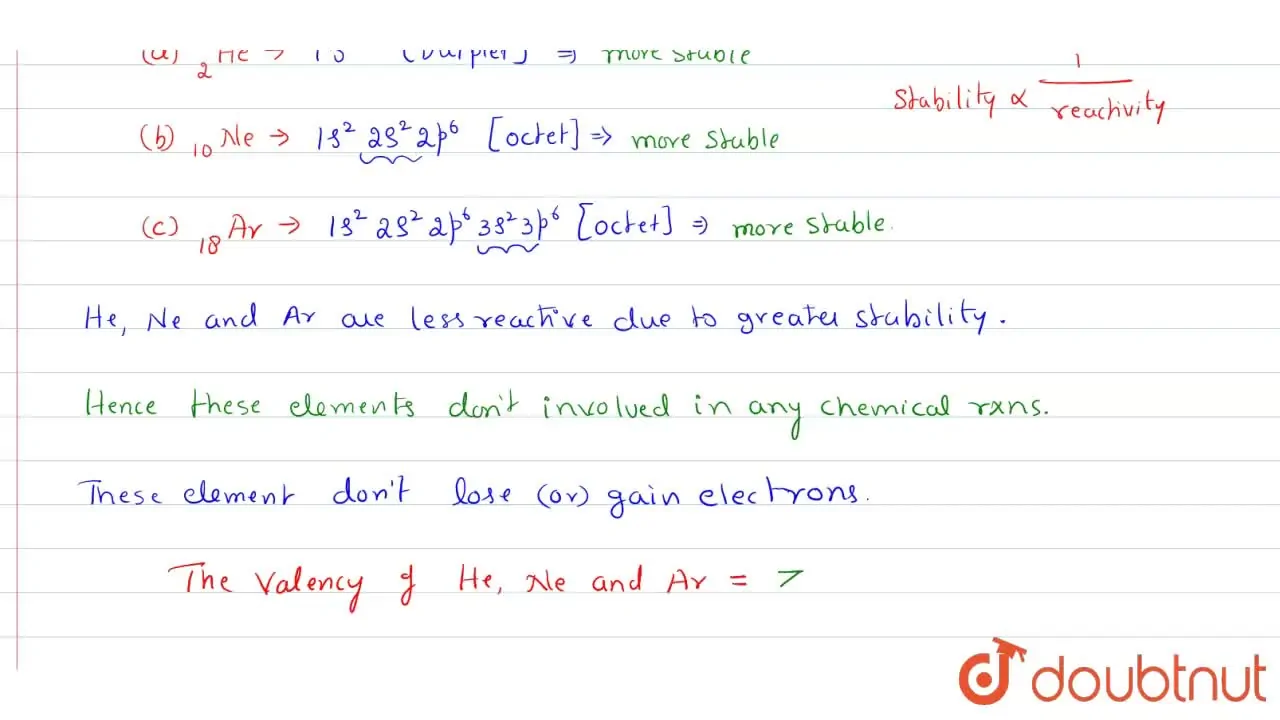 (a) ₂He → 1s [Duplet] ⇒ more stable
Stability ∝ 1 / reactivity
(b) ₁₀Ne → 1s² 2s² 2p⁶ [octet] ⇒ more stable
(c) ₁₈Ar → 1s² 2s² 2p⁶ 3s² 3p⁶ [octet] ⇒ more stable.
He, Ne and Ar are less reactive due to greater stability.
Hence these elements don't involved in any chemical rxns.
These element don't lose (or) gain electrons.
The valency of He, Ne and Ar = Z
doubtnut